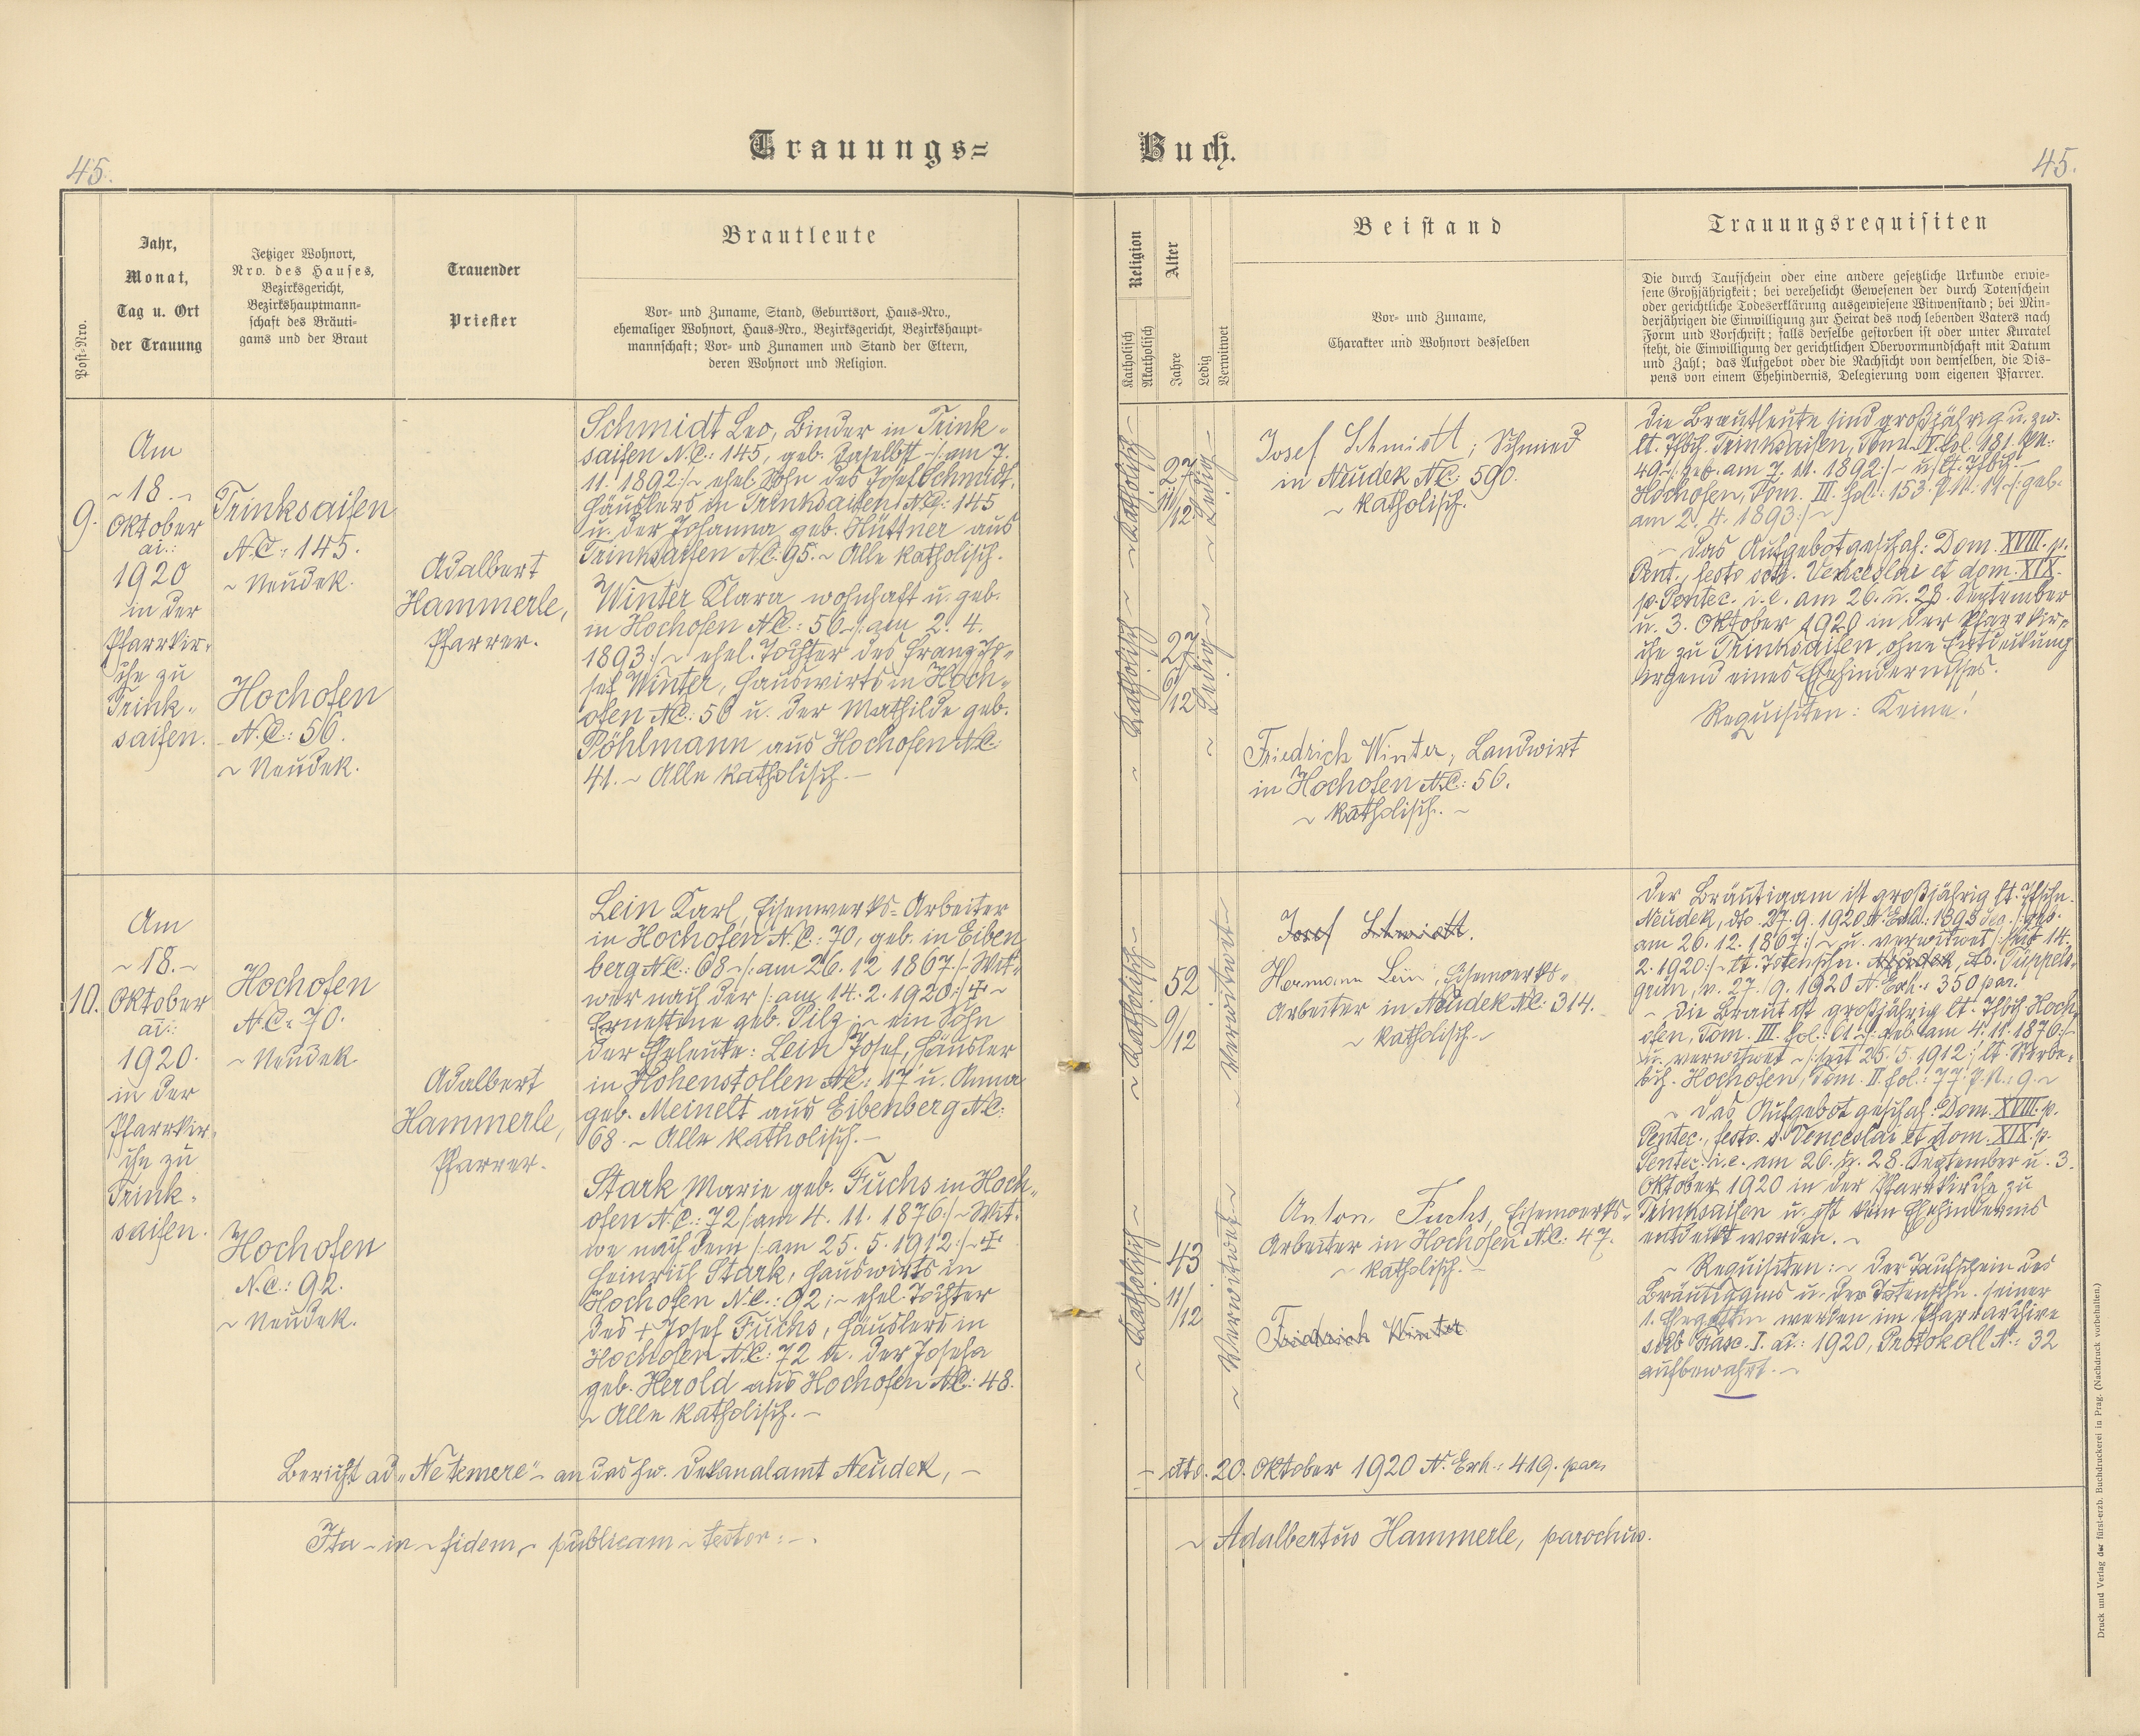 Trauungs=
Buch.
45.
45.
Post-Nro.
Jahr,
Monat,
Tag u. Ort
der Trauung
Jetziger Wohnort,
Nro. des Hauses,
Bezirksgericht,
Bezirkshauptmann-
schaft des Bräuti-
gams und der Braut
Trauender
Priester
Brautleute
Vor- und Zuname, Stand, Geburtsort, Haus-Nro.,
ehemaliger Wohnort, Haus-Nro., Bezirksgericht, Bezirkshaupt-
mannschaft; Vor- und Zunamen und Stand der Eltern,
deren Wohnort und Religion.
Religion
Katholisch
Akatholisch
Alter
Jahre
Ledig
Verwitwet
Beistand
Vor- und Zuname,
Charakter und Wohnort desselben
Trauungsrequisiten
Die durch Taufschein oder eine andere gesetzliche Urkunde erwie-
sene Großjährigkeit; bei verehelicht Gewesenen der durch Totenschein
oder gerichtliche Todeserklärung ausgewiesene Witwenstand; bei Min-
derjährigen die Einwilligung zur Heirat des noch lebenden Vaters nach
Form und Vorschrift; falls derselbe gestorben ist oder unter Kuratel
steht, die Einwilligung der gerichtlichen Obervormundschaft mit Datum
und Zahl; das Aufgebot oder die Nachsicht von demselben, die Dis-
pens von einem Ehehindernis, Delegierung vom eigenen Pfarrer.
9.
Am
~ 18. ~
Oktober
ai.:
1920
in der
Pfarrkir-
che zu
Trink-
saifen.
Trinksaifen
N.C.: 145.
~ Neudek.
Hochofen
N.C.: 56.
~ Neudek.
Adalbert
Hammerle,
Pfarrer.
Schmidt Leo, Binder in Trink-
saifen N.C.: 145, geb. daselbst ~/: am 7.
11. 1892 :/~ ehel. Sohn des Josef Schmidt,
Häuslers in Trinksaifen N.C.: 145
u. der Johanna geb. Hüttner aus
Trinksaifen N.C. 95. ~ Alle katholisch.
Winter Klara wohnhaft u. geb.
in Hochofen N.C.: 56 ~/: am 2. 4.
1893 :/~ ehel. Tochter des Franz Jo-
sef Winter, Hauswirts in Hoch-
ofen N.C.: 56 u. der Mathilde geb.
Pöhlmann aus Hochofen N.C.:
41. ~ Alle katholisch. —
~ Katholisch ~
27
11/12
~ Ledig ~
~ Katholisch ~
27
6/12
~ Ledig ~
Josef Schmidt; Schmied
in Neudek N.C.: 590.
~ katholisch.
Friedrich Winter, Landwirt
in Hochofen N.C.: 56.
~ katholisch. ~
Die Brautleute sind großjährig u. zw.
lt. Tfbch. Trinksaifen, Tom. V. fol. 181. PN.:
49 ~/: geb. am 7. 11. 1892 :/~ u. lt. Tfbch.
Hochofen, Tom. III. fol.: 153. P.N. 19. ~/: geb.
am 2. 4. 1893 :/~
~ Das Aufgebot geschah: Dom. XVIII. p.
Pent., festo scti. Venceslai et dom. XIX.
p. Pentec. i. e. am 26. u. 28. September
u. 3. Oktober 1920 in der Pfarrkir-
che zu Trinksaifen ohne Entdeckung
irgend eines Ehehindernisses.
Requisiten: Keine!
10.
Am
~ 18. ~
Oktober
ai.:
1920.
in der
Pfarrkir-
che zu
Trink-
saifen.
Hochofen
N.C.: 70.
~ Neudek
Hochofen
N.C.: 92.
~ Neudek.
Adalbert
Hammerle,
Pfarrer.
Lein Karl, Eisenwerks-Arbeiter
in Hochofen N.C.: 70, geb. in Eiben-
berg N.C.: 68 ~/: am 26. 12. 1867 :/~ Wit-
wer nach der /: am 14. 2. 1920 :/ + ~
Ernestine geb. Pilz; ~ ein Sohn
der Eheleute: Lein Josef, Häusler
in Hohenstollen N.C.: 17 u. Anna
geb. Meinelt aus Eibenberg N.C.:
68. ~ Alle katholisch. —
Stark Marie geb. Fuchs in Hoch-
ofen N.C.: 72 /: am 4. 11. 1876 :/~ Wit-
we nach dem /: am 25. 5. 1912 :/~ +
Heinrich Stark, Hauswirts in
Hochofen N.C.: 92; ~ ehel. Tochter
des + Josef Fuchs, Häuslers in
Hochofen N.C.: 72 u. der Josefa
geb. Herold aus Hochofen N.C.: 48.
~ Alle katholisch. —
~ Katholisch ~
52
9/12
~ Verwitwet ~
~ Katholisch ~
43
11/12
~ Verwitwet ~
Josef Schmidt.
Hermann Lein, Eisenwerks-
Arbeiter in Neudek N.C.: 314.
~ katholisch. ~
Anton Fuchs, Eisenwerks-
Arbeiter in Hochofen N.C.: 47.
~ katholisch. —
Friedrich Winter
Der Bräutigam ist großjährig lt. Tfschn.
Neudek, dto. 27. 9. 1920 N. Exh.: 1893 /: geb.
am 26. 12. 1867 :/~ u. verwitwet /: seit 14.
2. 1920 :/~ lt. Totenschn. Neudek, dto. Püppels-
grün, v. 27. 9. 1920 N. Exh.: 350 par.
~ Die Braut ist großjährig lt. Tfbch. Hoch-
ofen, Tom. III. fol.: /: geb. am 4. 11. 1876 :/~
u. verwitwet ~/: seit 25. 5. 1912 :/ lt. Sterbe-
bch. Hochofen, Tom. II. fol.: 77. P.N.: 9. ~
~ Das Aufgebot geschah: Dom. XVIII. p.
Pentec., festo s. Venceslai et dom. XIX. p.
Pentec. i. e. am 26. u. 28. September u. 3.
Oktober 1920 in der Pfarrkirche zu
Trinksaifen u. ist kein Ehehindernis
entdeckt worden. ~
~ Requisiten: ~ Der Taufschein des
Bräutigams u. der Totenschn. seiner
1. Ehegattin werden im Pfarrarchive
sub Fasc. I. ai.: 1920, Protokoll N.: 32
aufbewahrt. ~
Bericht ad „Ne temere" ~ an das hw. Dekanalamt Neudek, —
— dto. 20. Oktober 1920 N. Exh.: 419. par.
Ita ~ in ~ fidem ~ publicam ~ testor: —.
~ Adalbertus Hammerle, parochus.
Druck und Verlag der fürst-erzb. Buchdruckerei in Prag. (Nachdruck vorbehalten.)